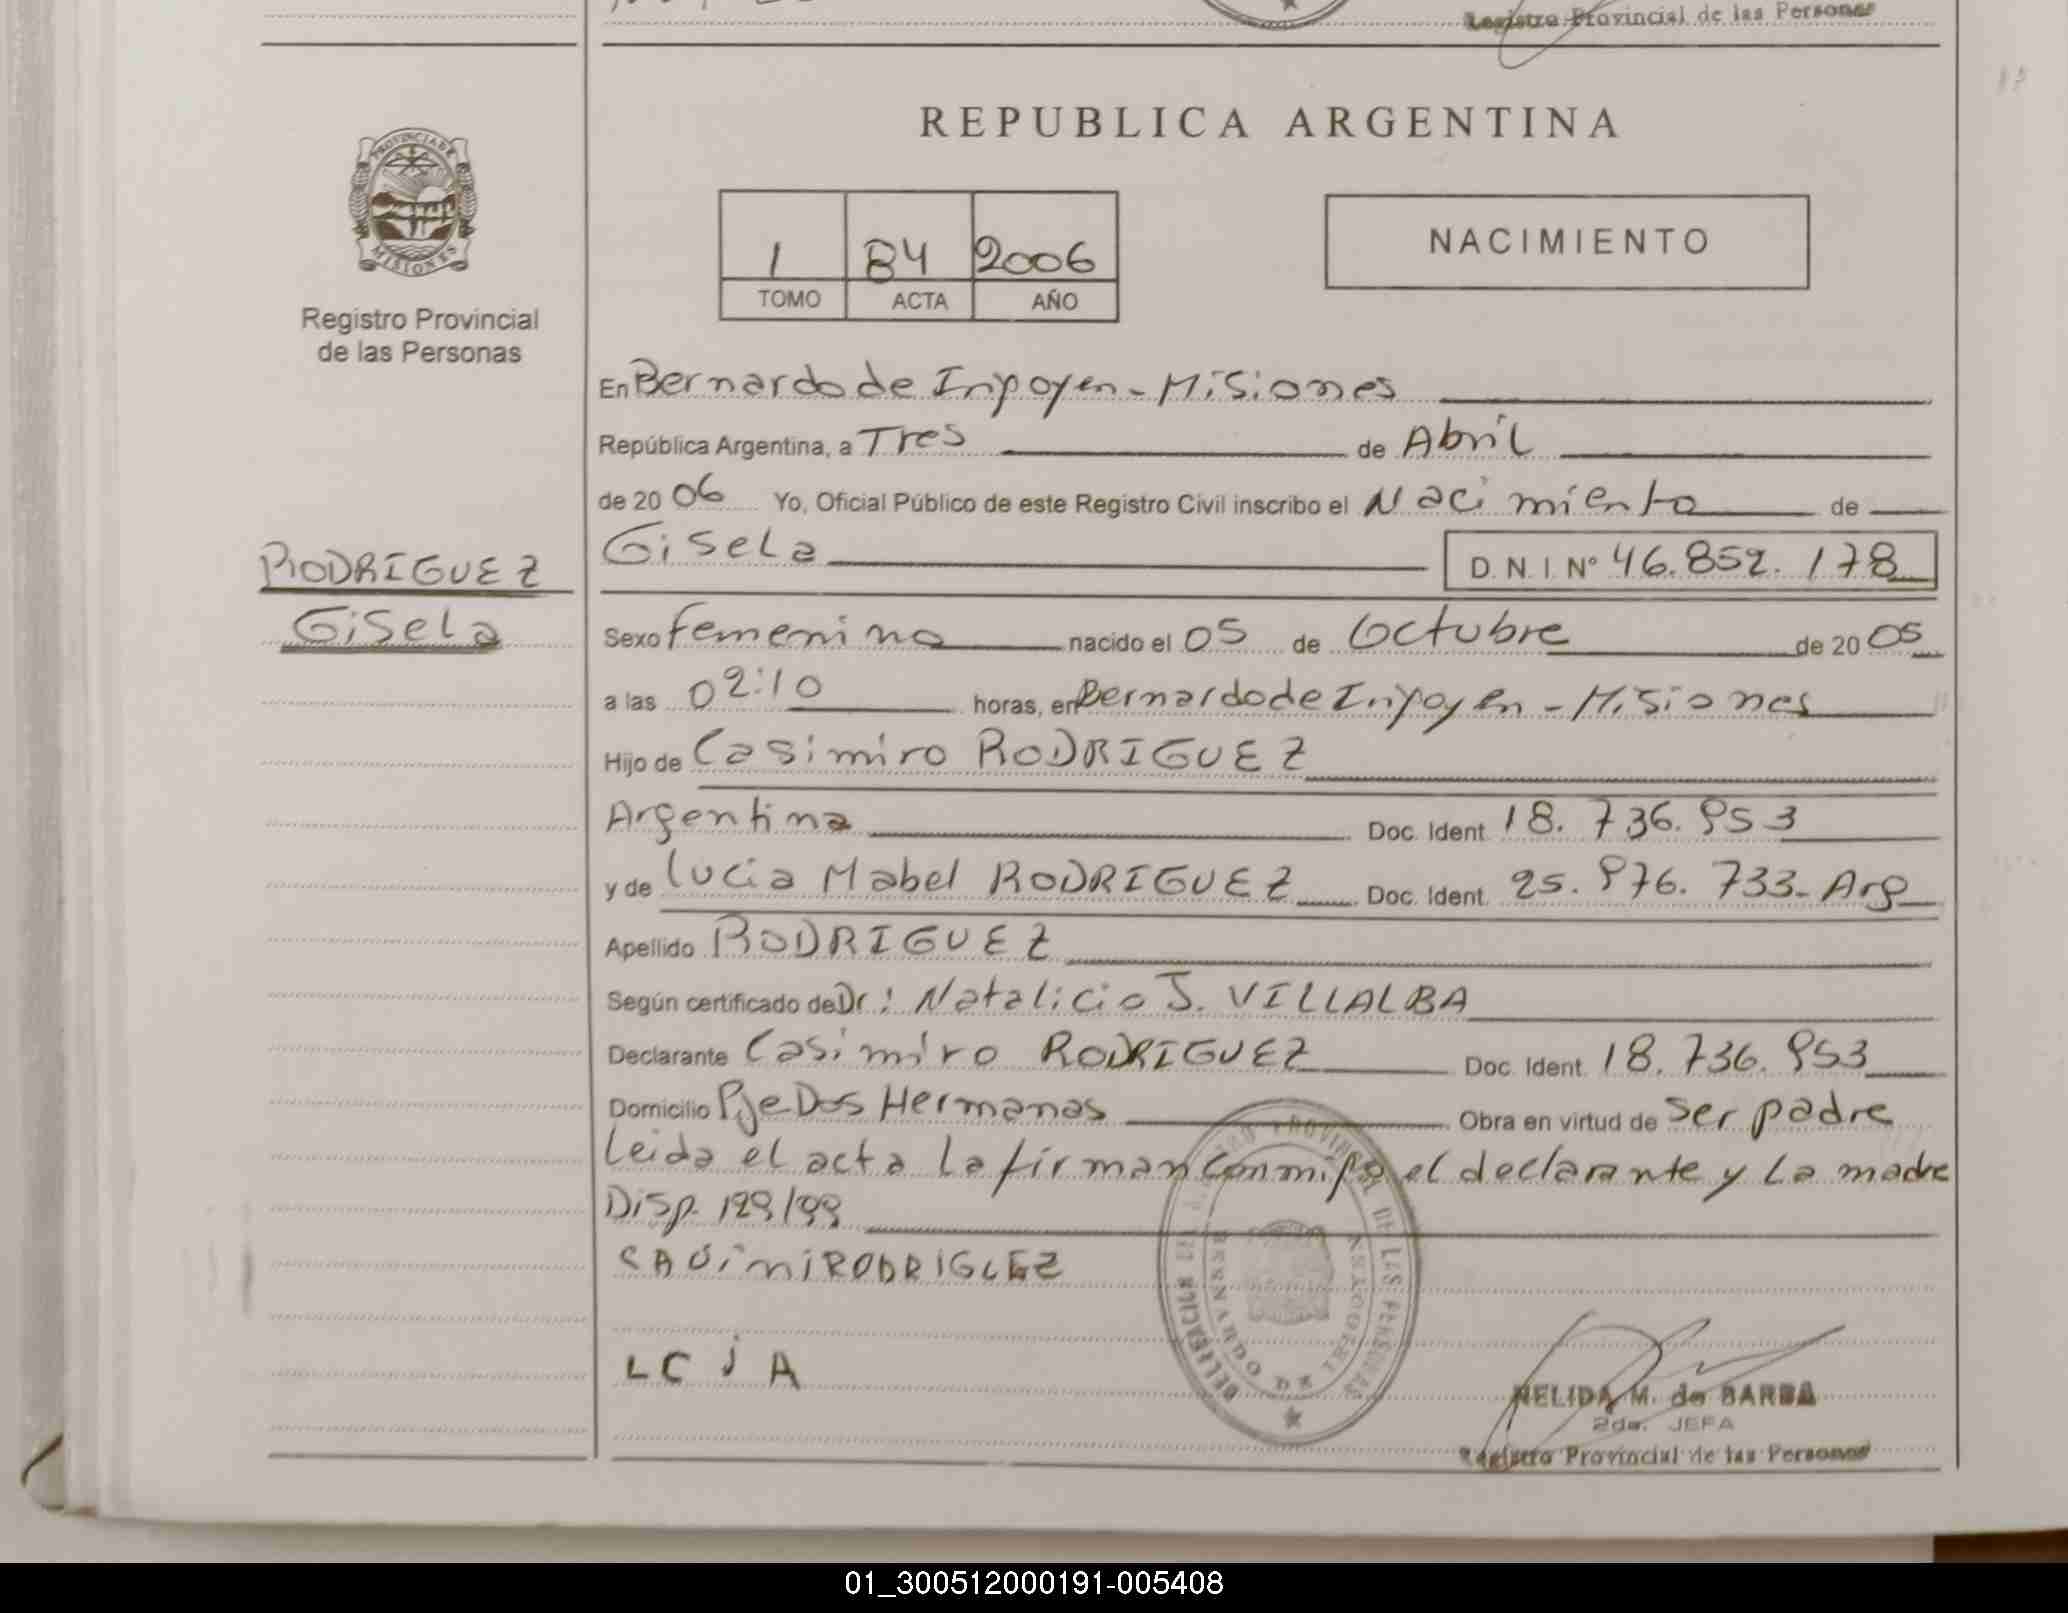 Registro Provincial de las Personas
PROVINCIA DE
MISIONES
Registro Provincial
de las Personas
REPUBLICA ARGENTINA
1 84 2006
TOMO ACTA AÑO
NACIMIENTO
En Bernardo de Irigoyen - Misiones
República Argentina, a Tres de Abril
de 2006 Yo, Oficial Público de este Registro Civil inscribo el Nacimiento de
Gisela D. N. I. N° 46.852.178
RODRIGUEZ
Gisela
Sexo femenino nacido el 05 de Octubre de 2005
a las 02:10 horas, en Bernardo de Irigoyen - Misiones
Hijo de Casimiro RODRIGUEZ
Argentina Doc. Ident. 18.736.953
y de Lucia Mabel RODRIGUEZ Doc. Ident. 25.976.733- Arg
Apellido RODRIGUEZ
Según certificado de Dr: Natalicio J. VILLALBA
Declarante Casimiro RODRIGUEZ Doc. Ident. 18.736.953
Domicilio Pje Dos Hermanas Obra en virtud de ser padre
Leida el acta la firman conmigo el declarante y la madre
Disp. 129/99
CAUiMiRODRIGUEZ
LCiA
DELEGACION REGISTRO PROVINCIAL DE LAS PERSONAS
BERNARDO DE IRIGOYEN
NELIDA M. de BARBA
2da. JEFA
Registro Provincial de las Personas
01_300512000191-005408